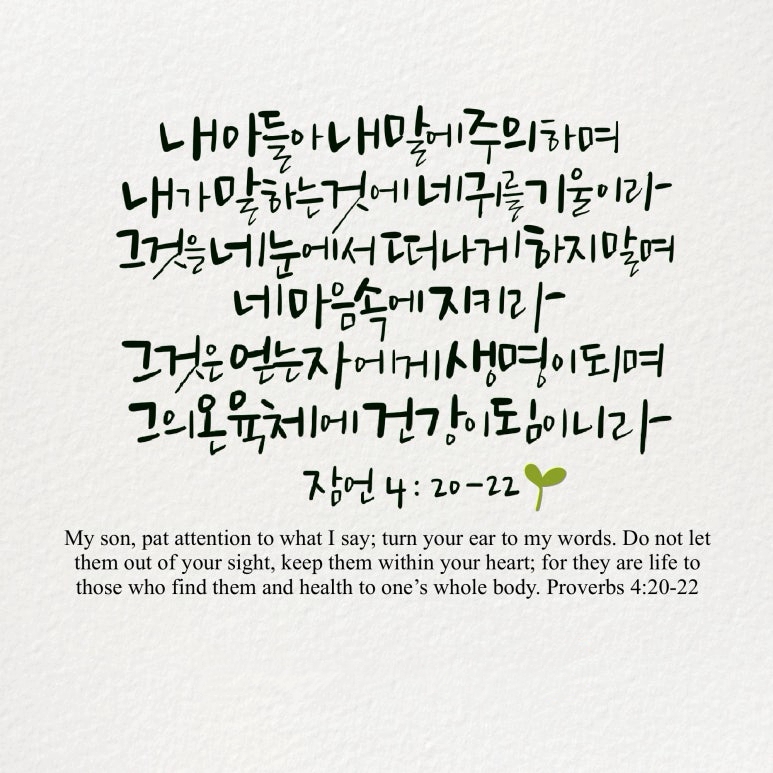 내 아들아 내 말에 주의하며
내가 말하는 것에 네 귀를 기울이라
그것을 네 눈에서 떠나게 하지 말며
네 마음 속에 지키라
그것은 얻는 자에게 생명이 되며
그의 온 육체에 건강이 됨이니라
잠언 4 : 20-22
My son, pat attention to what I say; turn your ear to my words. Do not let
them out of your sight, keep them within your heart; for they are life to
those who find them and health to one’s whole body. Proverbs 4:20-22